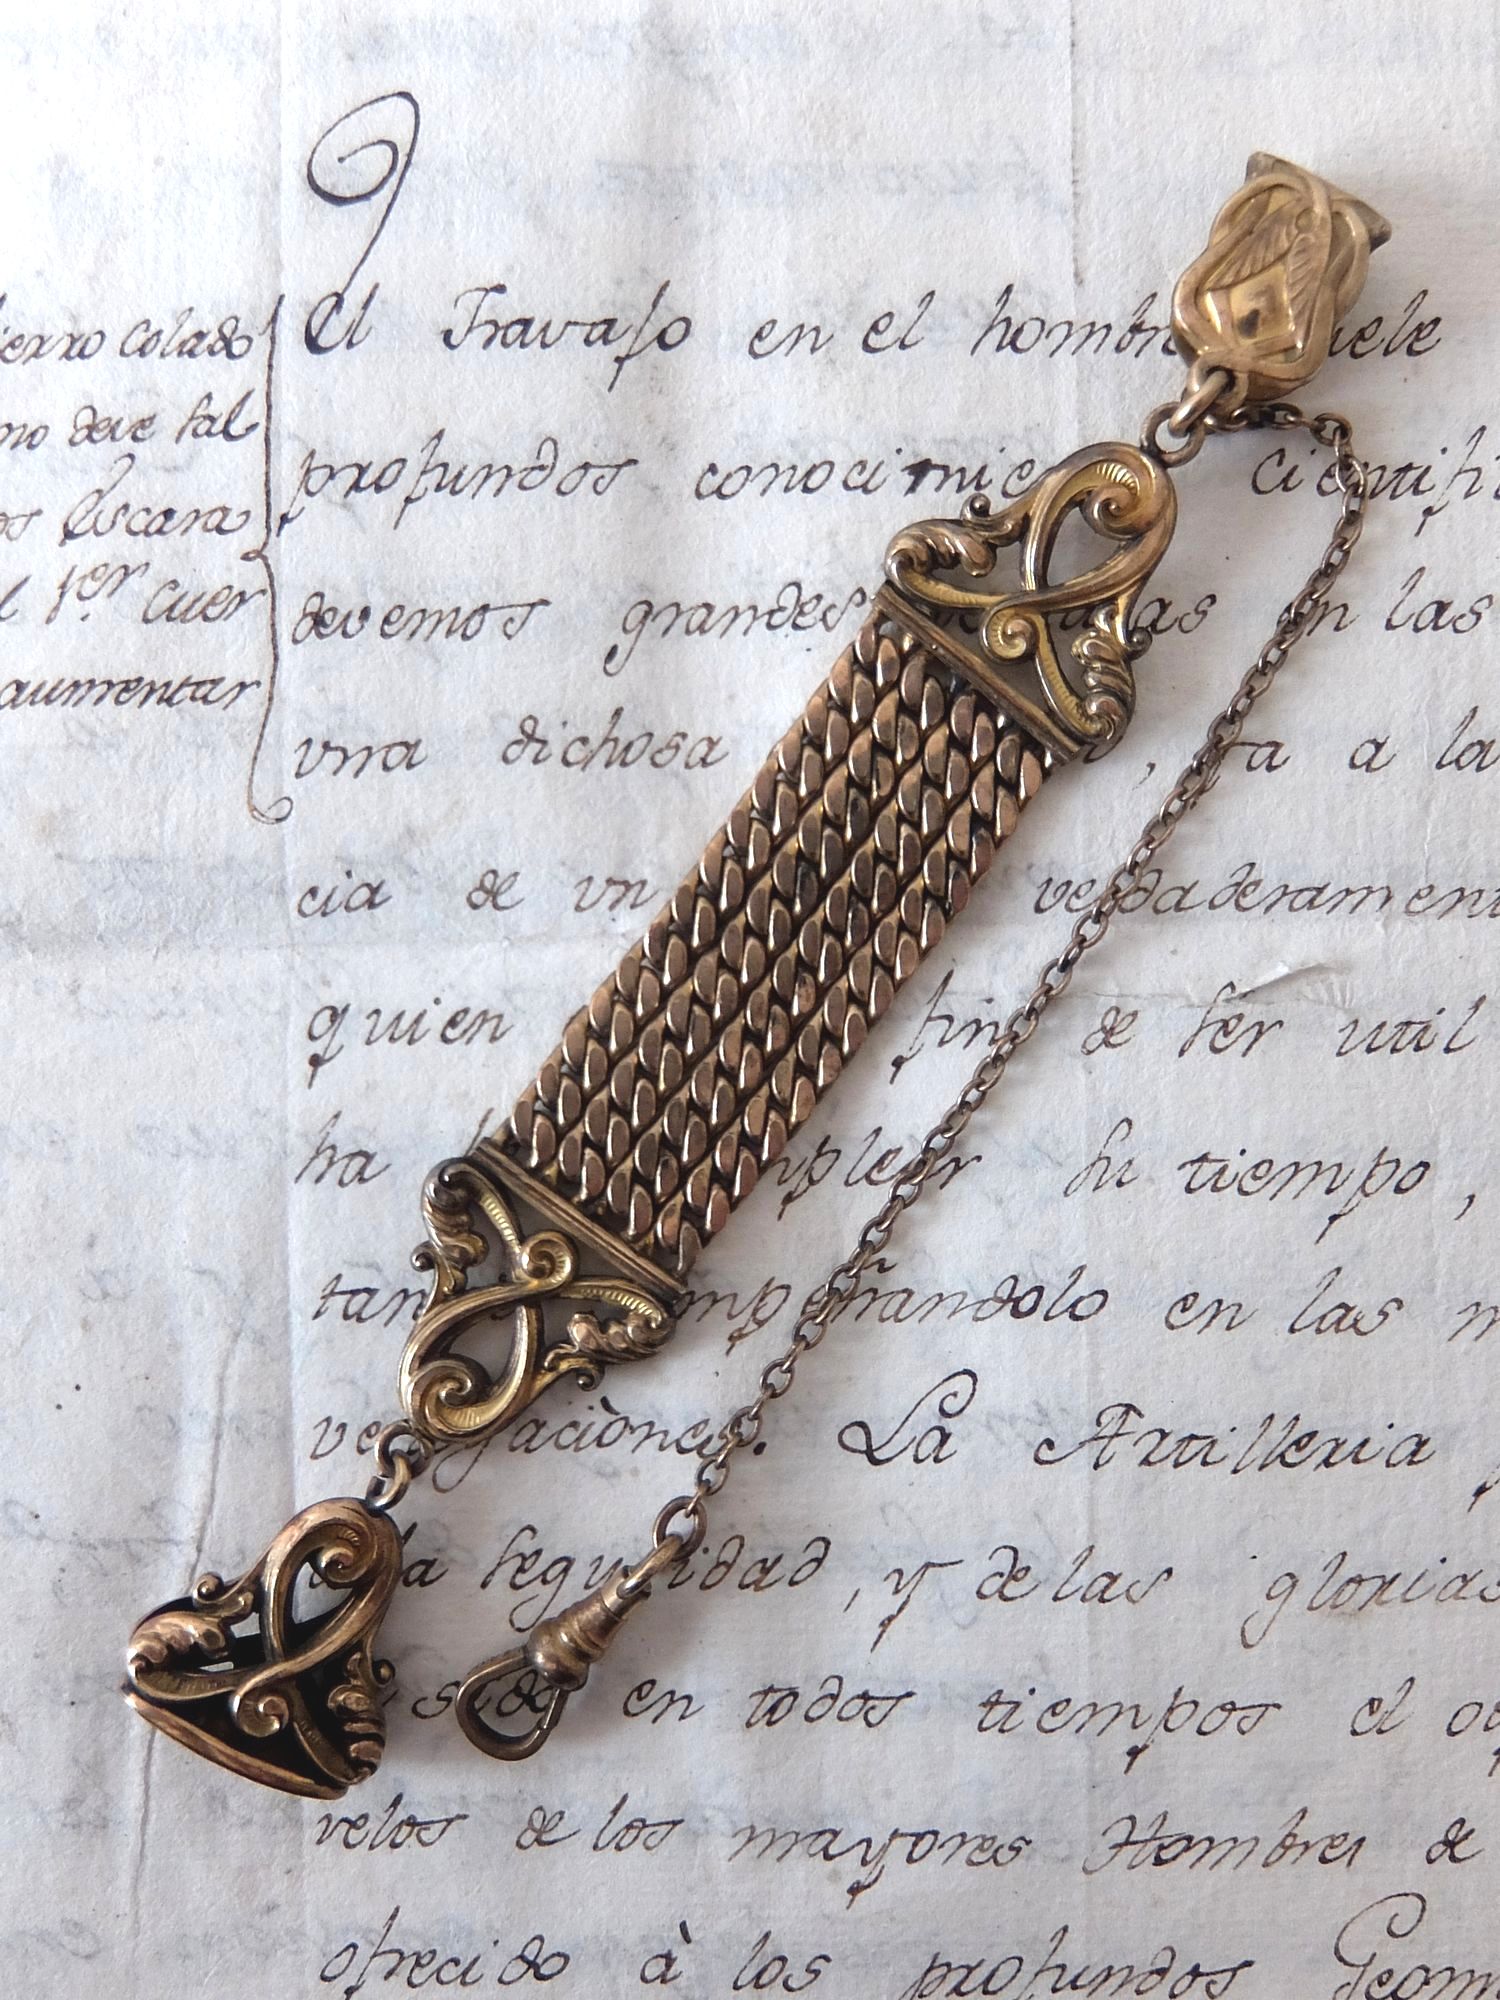 erro Colado
no deve tal
os Escara
l 1er. Cuer
aumentar
El Travajo en el hombre suele
profundos conocimie Cientifi
devemos grandes as en las
vna dichosa , ta a la
cia de vn verdaderament
quien fin de ser util
ha emplear su tiempo ,
tan empeñandolo en las m
vestigaciones. La Artilleria
la seguridad , y de las glorias
sido en todos tiempos el ob
velos de los mayores Hombres de
ofrecido à los profundos Geom